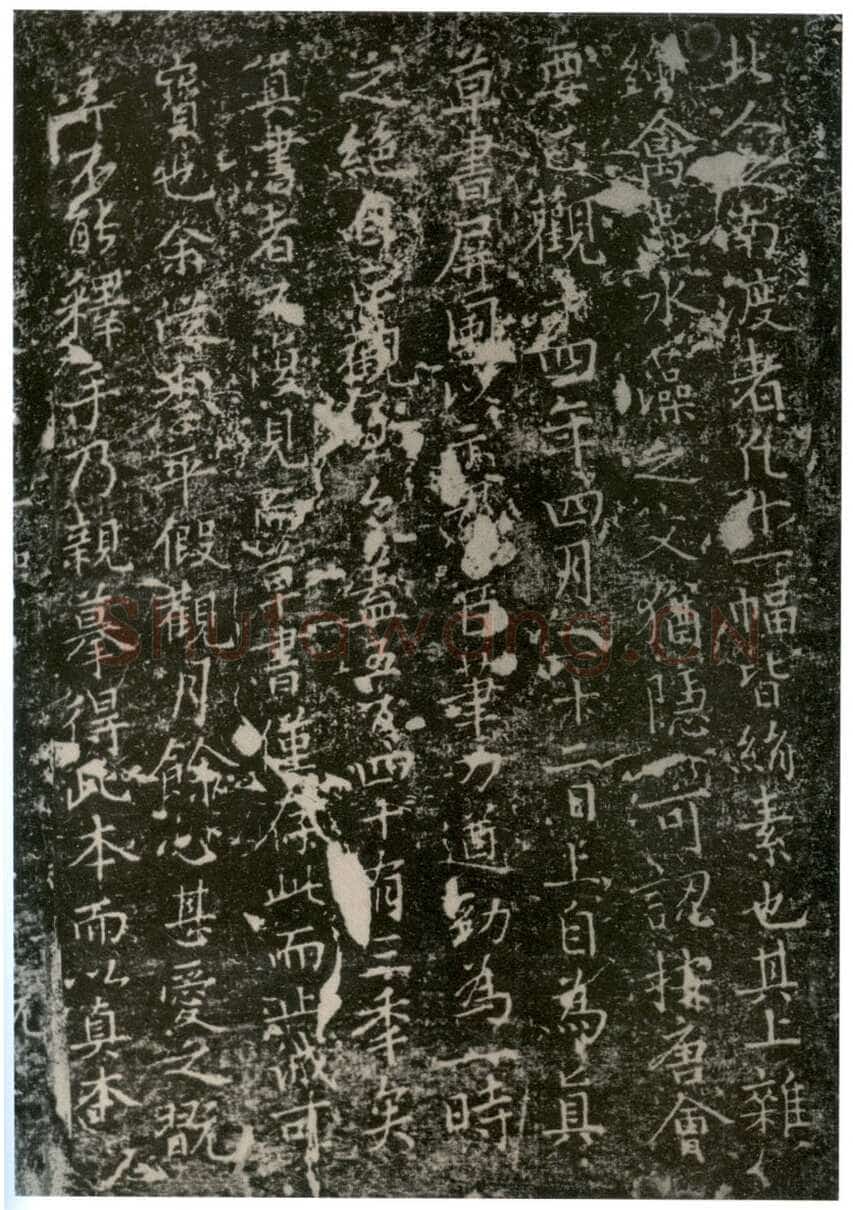 北人之南渡者凡十一幅皆絹素也其上雜
繪禽蟲水藻之文猶隱可認按唐會
要貞觀十四年四月二十二日上自為真
草書屏風以示羣臣筆力遒勁為一時
之絕自貞觀至今蓋五百四十有三年矣
真書者不復見而草書僅存此而止誠可
寶也余從李平假觀月餘心甚愛之既
弄不能釋手乃親摹得此本而以真本
Shufawang.CN